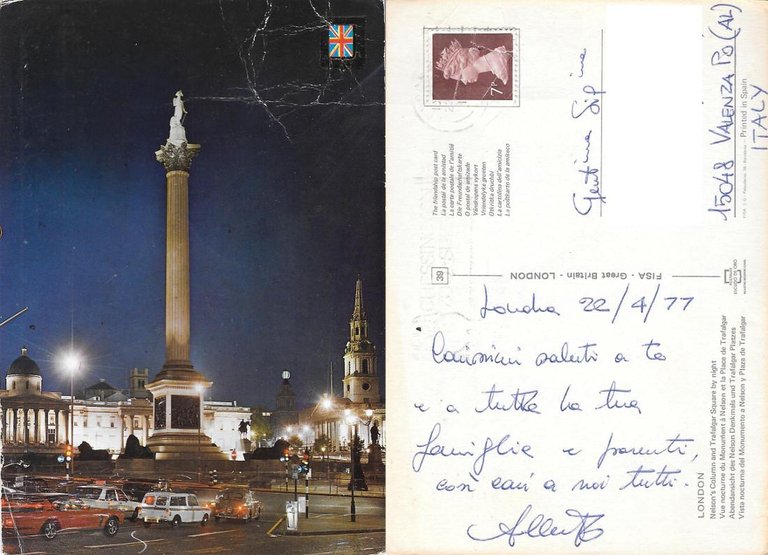 7P
The friendship post card
La postal de la amistad
La carte postale de l'amitié
Die Freundschaftskarte
O postal de amizade
Vänskapens vykort
Vriendelyke groeten
La cartolina dell'amicizia
Gentma Sig.ina
15048 VALENZA PO (AL)
ITALY
Printed in Spain
39
FISA - Great Britain - LONDON
Londra 22/4/77
Carissimi saluti a te
e a tutta la tua
famiglia e parenti,
così cari a noi tutti.
LONDON
Nelson's Column and Trafalgar Square by night
Vue nocturne du Monument à Nelson et la Place de Trafalgar
Abendansicht des Nelson Denkmals und Trafalgar Platzes
Vista nocturna del Monumento a Nelson y Plaza de Trafalgar